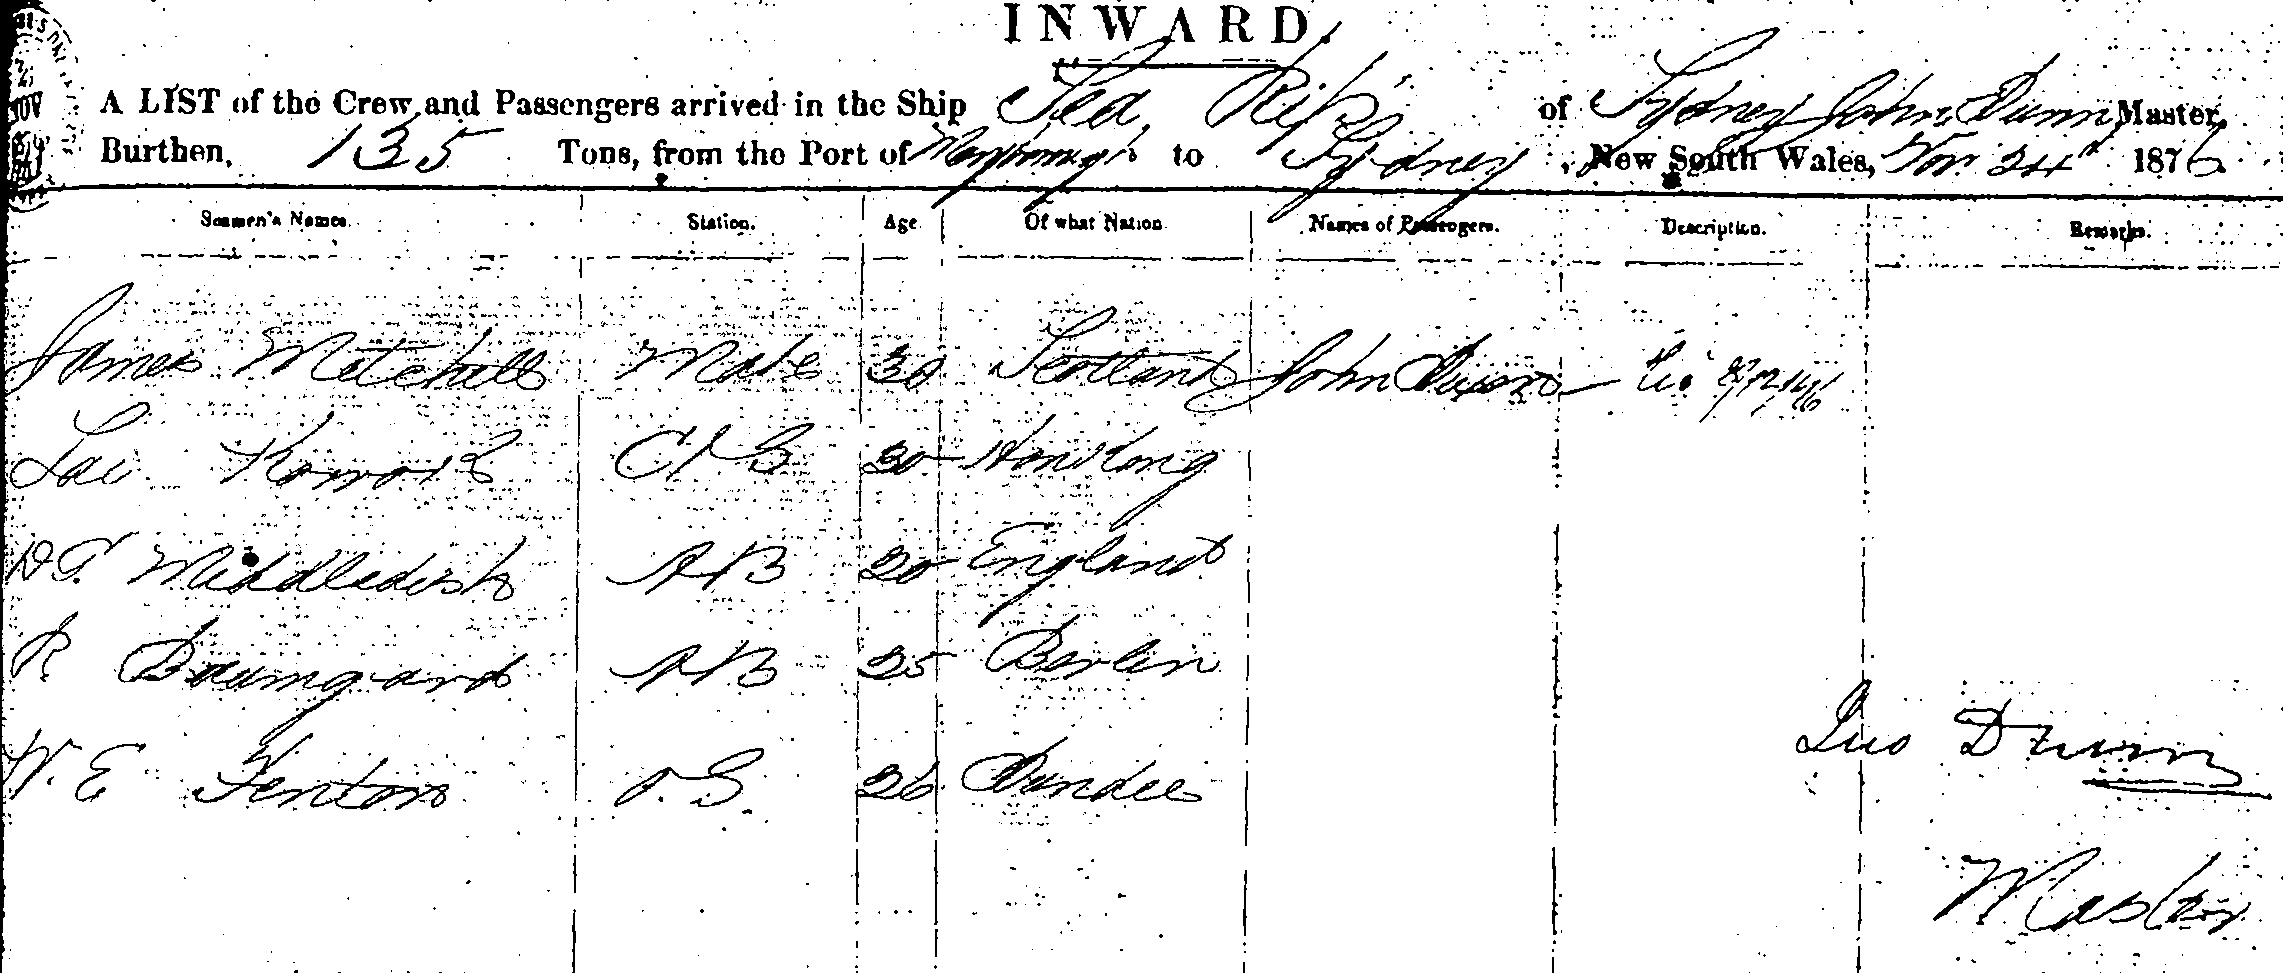 INWARD.
A LIST of the Crew and Passengers arrived in the Ship Sea Rip of Sydney John Dunn Master,
Burthen, 135 Tons, from the Port of Maryborough to Sydney, New South Wales, Nov. 24th 1876
Seamen's Names. Station. Age Of what Nation Names of Passengers. Description. Remarks.
James Mitchell Mate 30 Scotland John Dixon
C/S 30
Middledish AB 20 England
R Baumgard AB 25 Berlin
W. E Fenton O.S. 26 Dundee
Dunn
Master